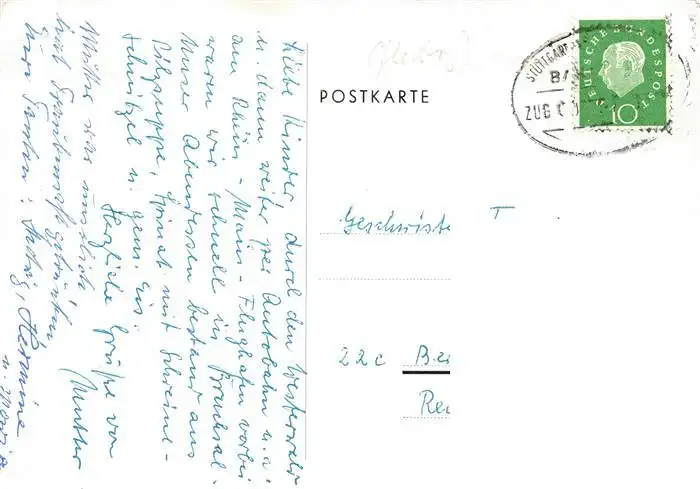 Liebe Kinder, durch den Westerwald
u. dann weiter per Autobahn u. a.
am Rhein-Main-Flughafen vorbei
waren wir schnell in Bruchsal.
Unser Abendessen bestand aus
Pilzsuppe, Spinat mit Schweine-
schnitzel u. gem. Eis.
Herzliche Grüße von
Mutter
Mutter war
hat Traubensaft getrunken
Eure Tanten: Hedwig, Hermine
u. Maria
POSTKARTE
STUTTGART
BA
ZUG
DEUTSCHE BUNDESPOST
10
Geschwiste T
22c Be
Re